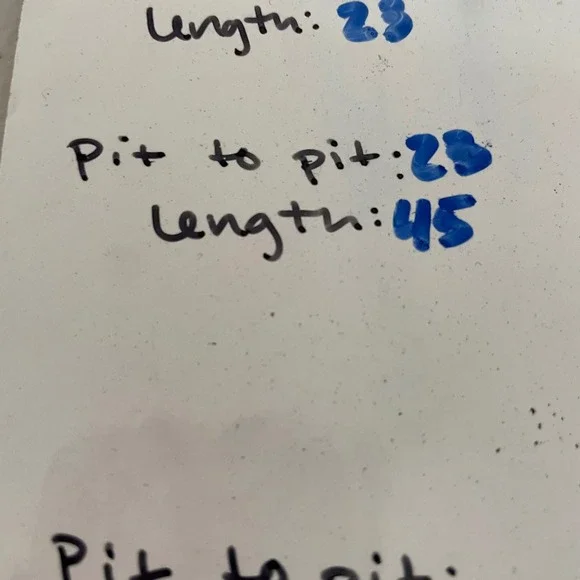 length: 23
Pit to pit: 23
length: 45
Pit to pit: